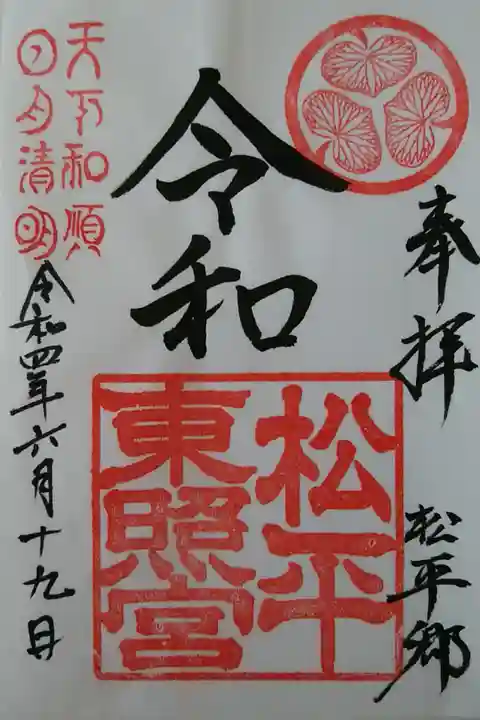 奉拝
松平郷
令和
松平
東照宮
天下和順
日月清明
令和四年六月十九日